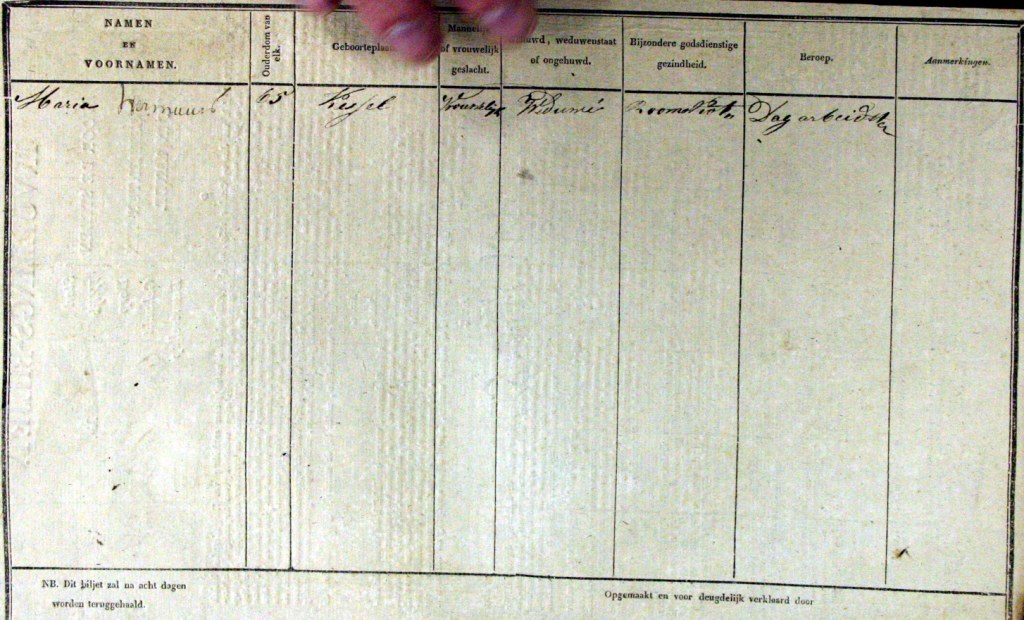 NAMEN
EN
VOORNAMEN.
Ouderdom van
elk.
Geboorteplaa
Mannelijk
of vrouwelijk
geslacht.
uwd, weduwenstaat
of ongehuwd.
Bijzondere godsdienstige
gezindheid.
Beroep.
Aanmerkingen.
Maria 65 Kessel Vrouwelyk Roomsch Dag arbeidster
NB. Dit biljet zal na acht dagen
worden teruggehaald.
Opgemaakt en voor deugdelijk verklaard door